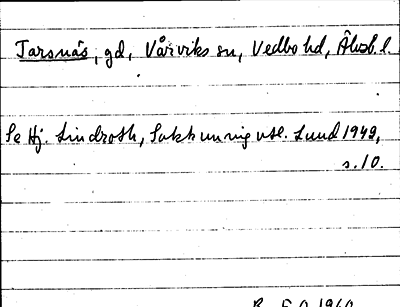 Tarsnäs, gd, Vårviks sn, Vedbo hd, Älvsb. l.
Se Hj. Lindroth, Sakkunnigutl. Lund 1949,
s. 10.